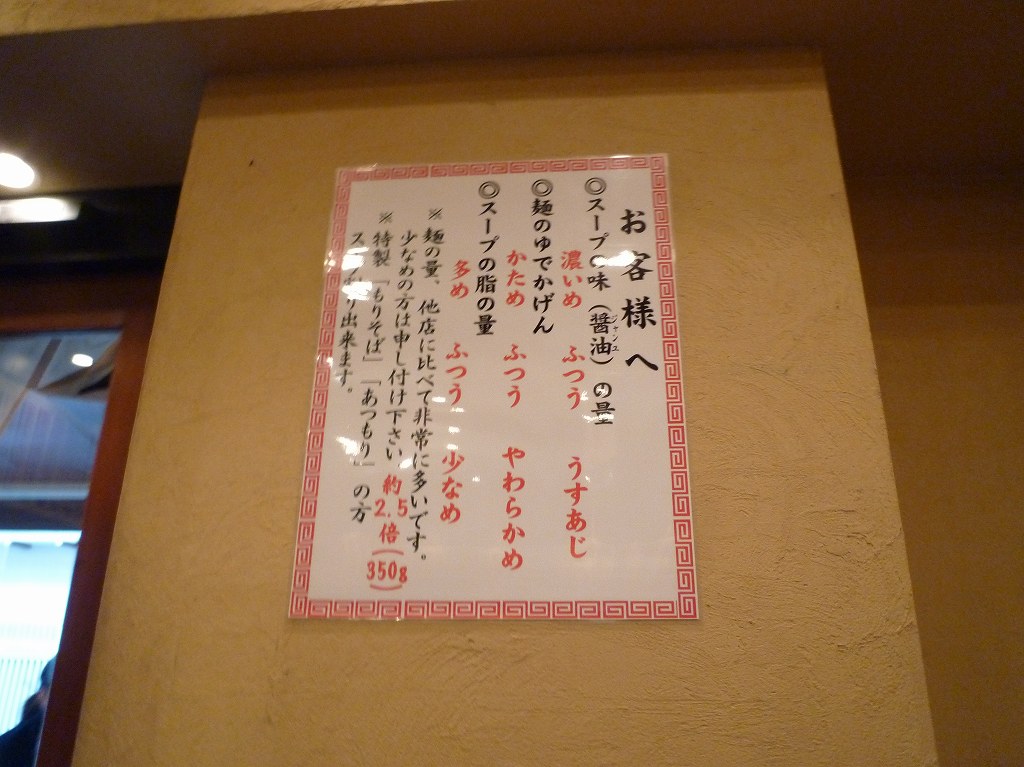 お客様へ
◎スープの味（醤油）の量
ジャンユ
濃いめ ふつう うすあじ
◎麺のゆでかげん
かため ふつう やわらかめ
◎スープの脂の量
多め ふつう 少なめ
※麺の量、他店に比べて非常に多いです。
少なめの方は申し付け下さい 約2.5倍(350g)
※特製「もりそば」「あつもり」の方
スープわり出来ます。